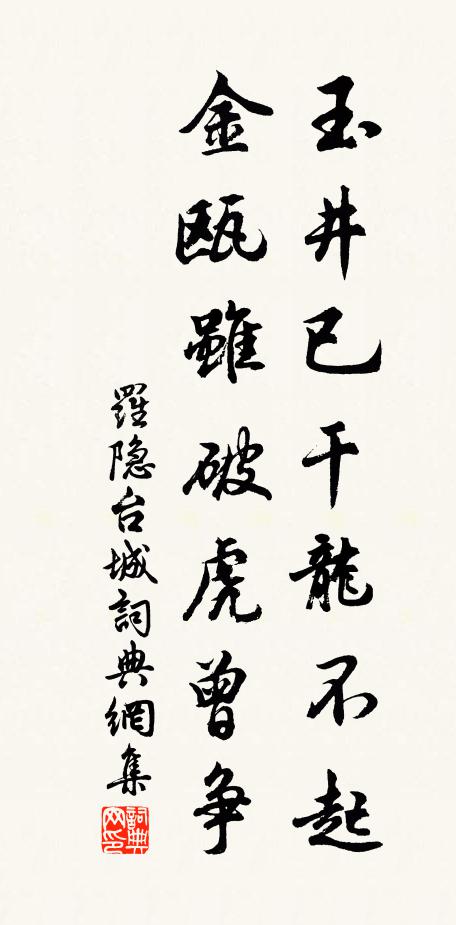 玉井已干龍不起
金甌雖破虎曾争
羅隐台城詞典網集
詞典网印